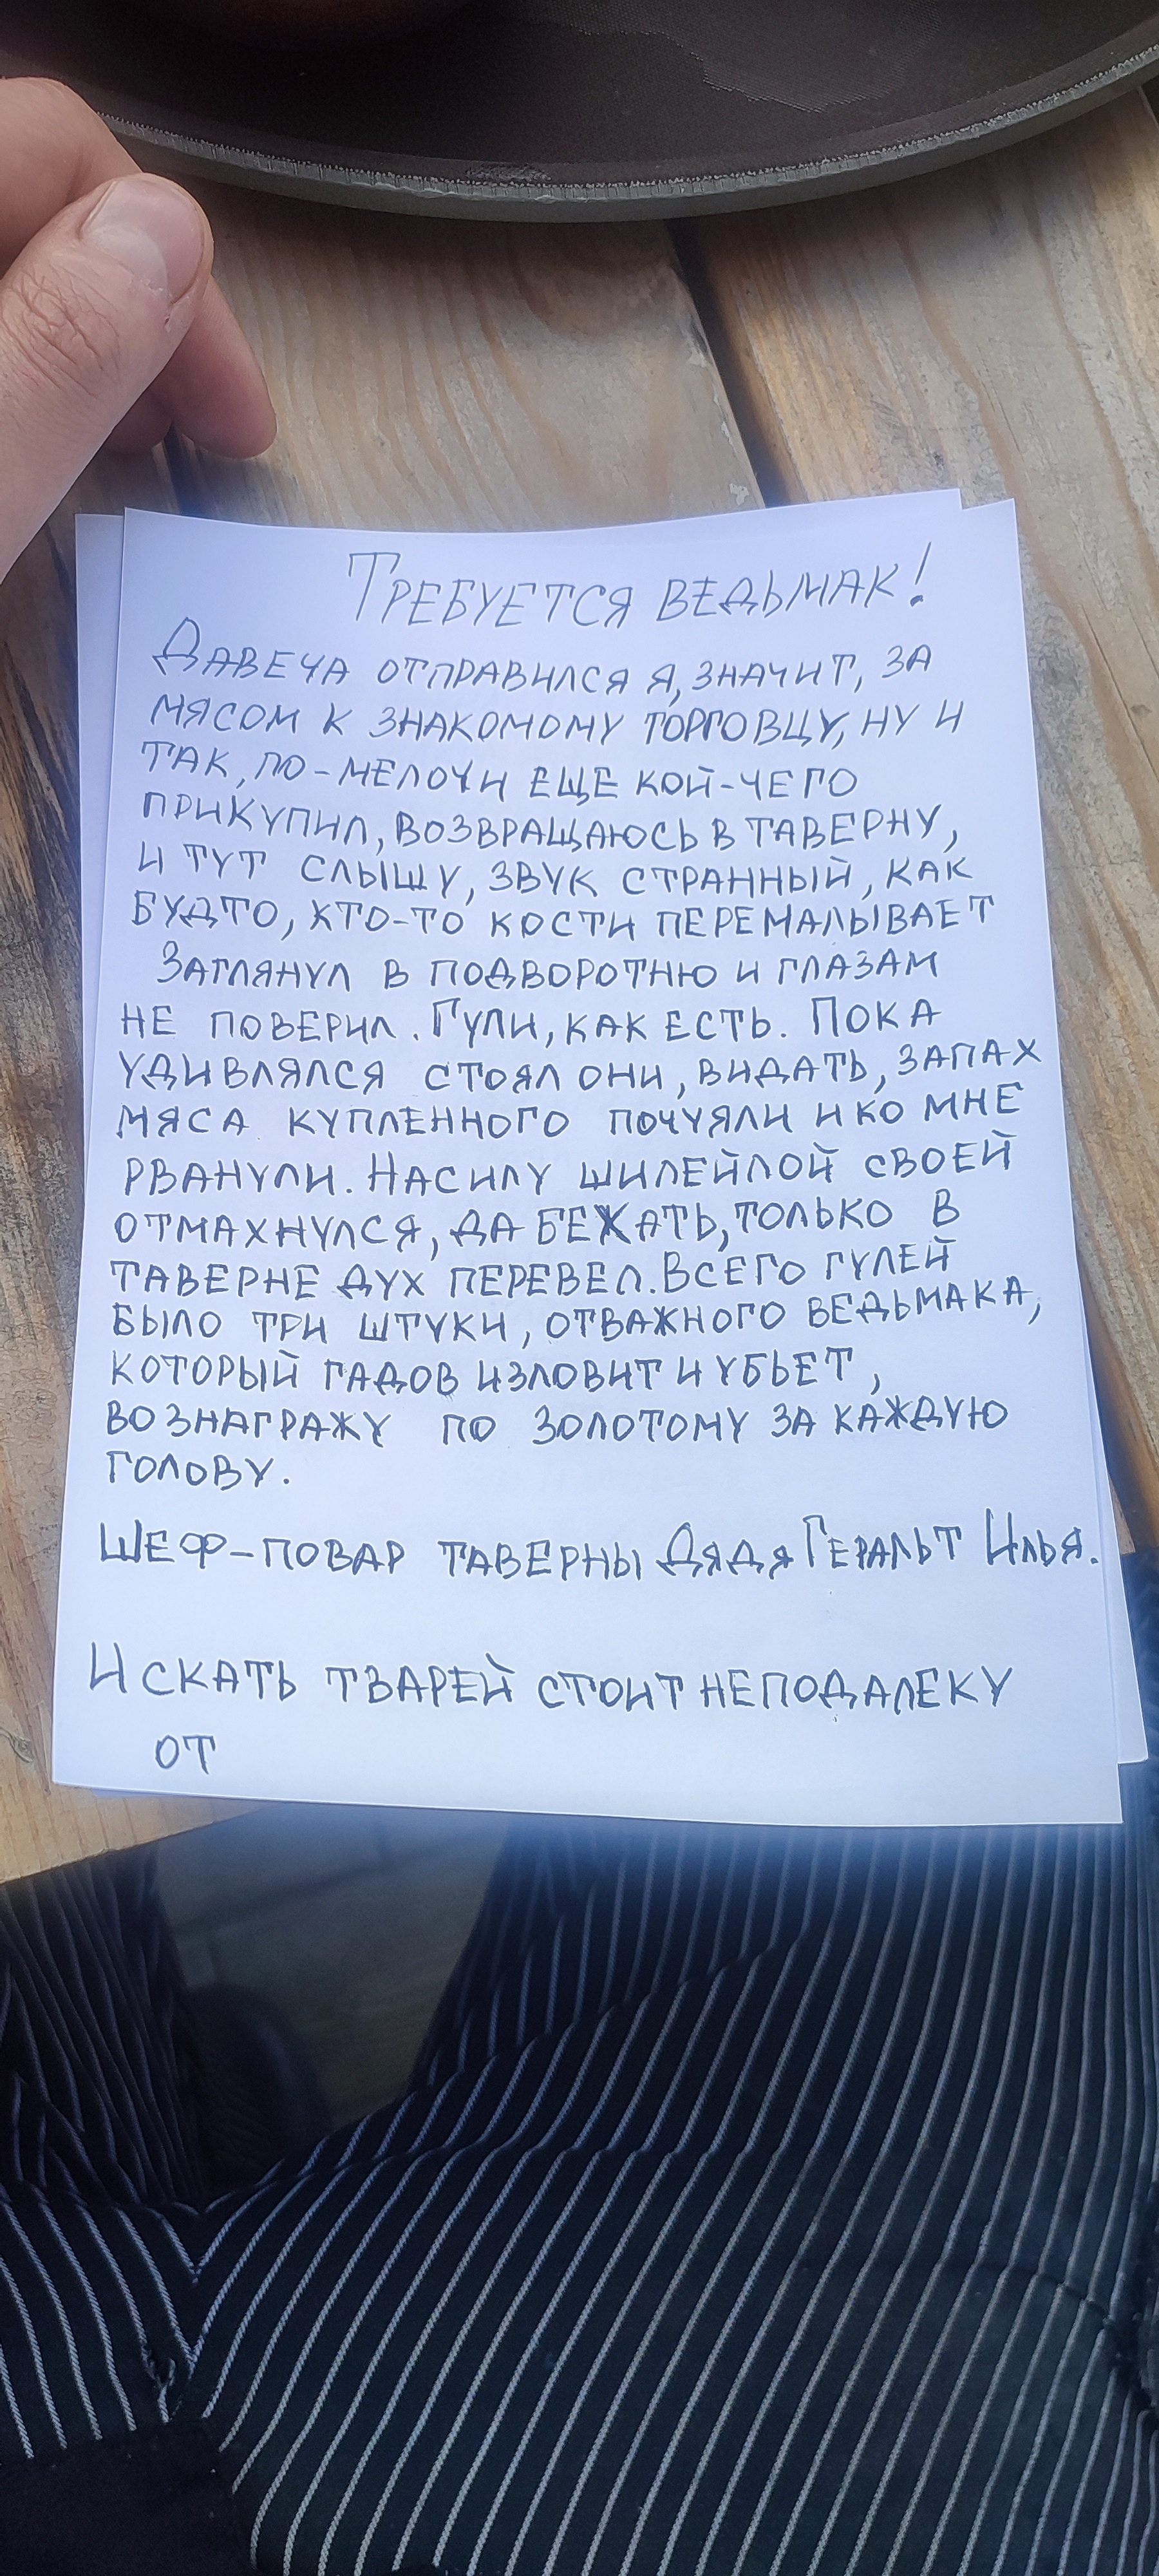 Требуется ведьмак!
Давеча отправился я, значит, за
мясом к знакомому торговцу, ну и
так, по-мелочи еще кой-чего
прикупил, возвращаюсь в таверну,
и тут слышу, звук странный, как
будто, кто-то кости перемалывает
Заглянул в подворотню и глазам
не поверил. Гули, как есть. Пока
удивлялся стоял они, видать, запах
мяса купленного почуяли и ко мне
рванули. Насилу шилейлой своей
отмахнулся, да бежать, только в
таверне дух перевел. Всего гулей
было три штуки, отважного ведьмака,
который гадов изловит и убьет,
вознагражу по золотому за каждую
голову.
Шеф-повар таверны Дядя Геральт Илья.
Искать тварей стоит неподалеку
от